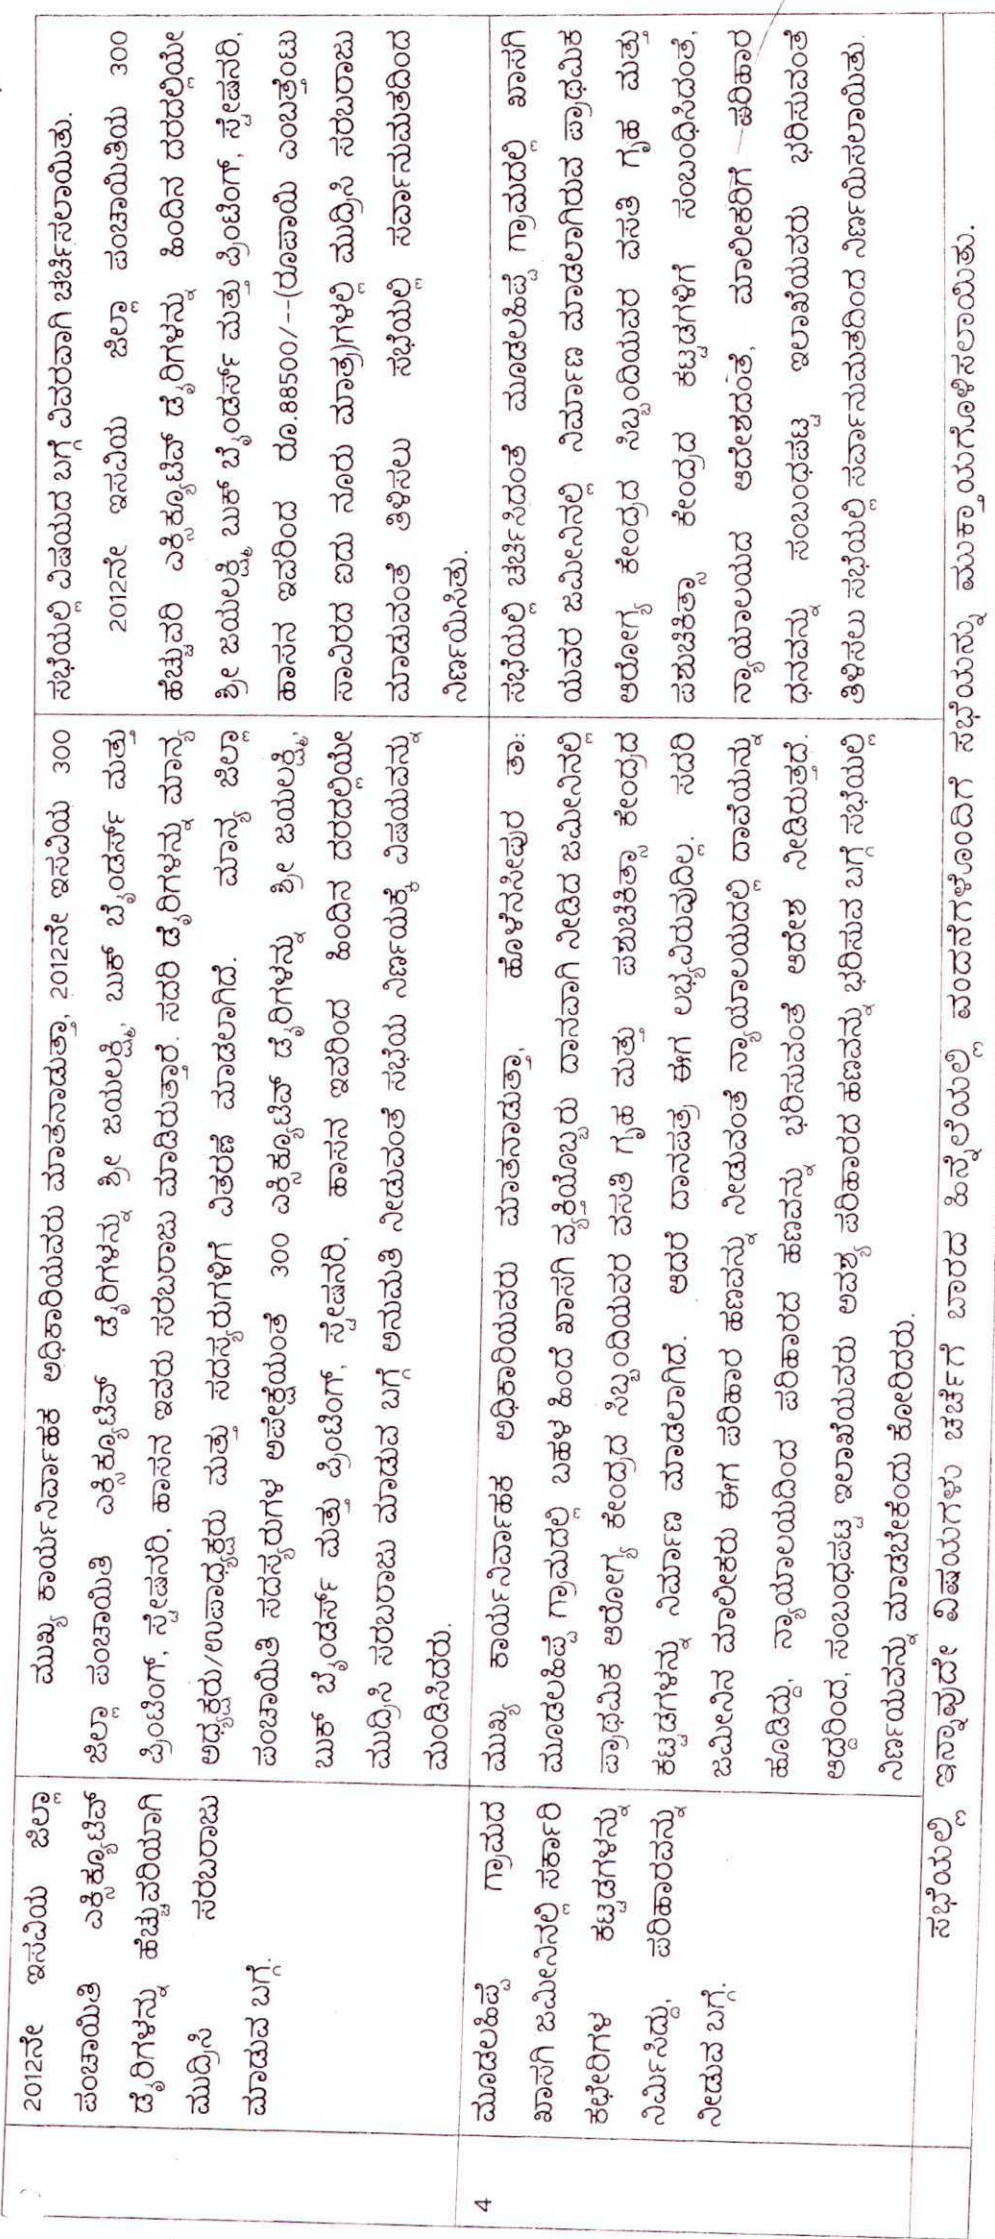 2012ನೇ ಇಸವಿಯ ಜಿಲ್ಲಾ
ಪಂಚಾಯಿತಿ ಎಕ್ಸಿಕ್ಯೂಟಿವ್
ಡೈರಿಗಳನ್ನು ಹೆಚ್ಚುವರಿಯಾಗಿ
ಮುದ್ರಿಸಿ ಸರಬರಾಜು
ಮಾಡುವ ಬಗ್ಗೆ.
ಮುಖ್ಯ ಕಾರ್ಯನಿರ್ವಾಹಕ ಅಧಿಕಾರಿಯವರು ಮಾತನಾಡುತ್ತಾ, 2012ನೇ ಇಸವಿಯ 300
ಜಿಲ್ಲಾ ಪಂಚಾಯಿತಿ ಎಕ್ಸಿಕ್ಯೂಟಿವ್ ಡೈರಿಗಳನ್ನು ಶ್ರೀ ಜಯಲಕ್ಷ್ಮಿ ಬುಕ್ ಬೈಂಡರ್ಸ್ ಮತ್ತು
ಪ್ರಿಂಟಿಂಗ್, ಸ್ಟೇಷನರಿ, ಹಾಸನ ಇವರು ಸರಬರಾಜು ಮಾಡಿರುತ್ತಾರೆ. ಸದರಿ ಡೈರಿಗಳನ್ನು ಮಾನ್ಯ
ಅಧ್ಯಕ್ಷರು/ಉಪಾಧ್ಯಕ್ಷರು ಮತ್ತು ಸದಸ್ಯರುಗಳಿಗೆ ವಿತರಣೆ ಮಾಡಲಾಗಿದೆ. ಮಾನ್ಯ ಜಿಲ್ಲಾ
ಪಂಚಾಯಿತಿ ಸದಸ್ಯರುಗಳ ಅಪೇಕ್ಷೆಯಂತೆ 300 ಎಕ್ಸಿಕ್ಯೂಟಿವ್ ಡೈರಿಗಳನ್ನು ಶ್ರೀ ಜಯಲಕ್ಷ್ಮಿ
ಬುಕ್ ಬೈಂಡರ್ಸ್ ಮತ್ತು ಪ್ರಿಂಟಿಂಗ್, ಸ್ಟೇಷನರಿ, ಹಾಸನ ಇವರಿಂದ ಹಿಂದಿನ ದರದಲ್ಲಿಯೇ
ಮುದ್ರಿಸಿ ಸರಬರಾಜು ಮಾಡುವ ಬಗ್ಗೆ ಅನುಮತಿ ನೀಡುವಂತೆ ಸಭೆಯ ನಿರ್ಣಯಕ್ಕೆ ವಿಷಯವನ್ನು
ಮಂಡಿಸಿದರು.
ಸಭೆಯಲ್ಲಿ ವಿಷಯದ ಬಗ್ಗೆ ವಿವರವಾಗಿ ಚರ್ಚಿಸಲಾಯಿತು.
2012ನೇ ಇಸವಿಯ ಜಿಲ್ಲಾ ಪಂಚಾಯಿತಿಯ 300
ಹೆಚ್ಚುವರಿ ಎಕ್ಸಿಕ್ಯೂಟಿವ್ ಡೈರಿಗಳನ್ನು ಹಿಂದಿನ ದರದಲ್ಲಿಯೇ
ಶ್ರೀ ಜಯಲಕ್ಷ್ಮಿ ಬುಕ್ ಬೈಂಡರ್ಸ್ ಮತ್ತು ಪ್ರಿಂಟಿಂಗ್, ಸ್ಟೇಷನರಿ,
ಹಾಸನ ಇವರಿಂದ ರೂ.88500/--(ರೂಪಾಯಿ ಎಂಬತ್ತೆಂಟು
ಸಾವಿರದ ಐದು ನೂರು ಮಾತ್ರ)ಗಳಲ್ಲಿ ಮುದ್ರಿಸಿ ಸರಬರಾಜು
ಮಾಡುವಂತೆ ತಿಳಿಸಲು ಸಭೆಯಲ್ಲಿ ಸರ್ವಾನುಮತದಿಂದ
ನಿರ್ಣಯಿಸಿತು.
4
ಮೂಡಲಹಿಪ್ಪೆ ಗ್ರಾಮದ
ಖಾಸಗಿ ಜಮೀನಿನಲ್ಲಿ ಸರ್ಕಾರಿ
ಕಛೇರಿಗಳ ಕಟ್ಟಡಗಳನ್ನು
ನಿರ್ಮಿಸಿದ್ದು, ಪರಿಹಾರವನ್ನು
ನೀಡುವ ಬಗ್ಗೆ.
ಮುಖ್ಯ ಕಾರ್ಯನಿರ್ವಾಹಕ ಅಧಿಕಾರಿಯವರು ಮಾತನಾಡುತ್ತಾ, ಹೊಳೆನರಸೀಪುರ ತಾ:
ಮೂಡಲಹಿಪ್ಪೆ ಗ್ರಾಮದಲ್ಲಿ ಬಹಳ ಹಿಂದೆ ಖಾಸಗಿ ವ್ಯಕ್ತಿಯೊಬ್ಬರು ದಾನವಾಗಿ ನೀಡಿದ ಜಮೀನಿನಲ್ಲಿ
ಪ್ರಾಥಮಿಕ ಆರೋಗ್ಯ ಕೇಂದ್ರದ ಸಿಬ್ಬಂದಿಯವರ ವಸತಿ ಗೃಹ ಮತ್ತು ಪಶುಚಿಕಿತ್ಸಾ ಕೇಂದ್ರದ
ಕಟ್ಟಡಗಳನ್ನು ನಿರ್ಮಾಣ ಮಾಡಲಾಗಿದೆ. ಆದರೆ ದಾನಪತ್ರ ಈಗ ಲಭ್ಯವಿರುವುದಿಲ್ಲ. ಸದರಿ
ಜಮೀನಿನ ಮಾಲೀಕರು ಈಗ ಪರಿಹಾರ ಹಣವನ್ನು ನೀಡುವಂತೆ ನ್ಯಾಯಾಲಯದಲ್ಲಿ ದಾವೆಯನ್ನು
ಹೂಡಿದ್ದು, ನ್ಯಾಯಾಲಯದಿಂದ ಪರಿಹಾರದ ಹಣವನ್ನು ಭರಿಸುವಂತೆ ಆದೇಶ ನೀಡಿರುತ್ತದೆ.
ಆದ್ದರಿಂದ, ಸಂಬಂಧಪಟ್ಟ ಇಲಾಖೆಯವರು ಅವಶ್ಯ ಪರಿಹಾರದ ಹಣವನ್ನು ಭರಿಸುವ ಬಗ್ಗೆ ಸಭೆಯಲ್ಲಿ
ನಿರ್ಣಯವನ್ನು ಮಾಡಬೇಕೆಂದು ಕೋರಿದರು.
ಸಭೆಯಲ್ಲಿ ಚರ್ಚಿಸಿದಂತೆ ಮೂಡಲಹಿಪ್ಪೆ ಗ್ರಾಮದಲ್ಲಿ ಖಾಸಗಿ
ಯವರ ಜಮೀನಿನಲ್ಲಿ ನಿರ್ಮಾಣ ಮಾಡಲಾಗಿರುವ ಪ್ರಾಥಮಿಕ
ಆರೋಗ್ಯ ಕೇಂದ್ರದ ಸಿಬ್ಬಂದಿಯವರ ವಸತಿ ಗೃಹ ಮತ್ತು
ಪಶುಚಿಕಿತ್ಸಾ ಕೇಂದ್ರದ ಕಟ್ಟಡಗಳಿಗೆ ಸಂಬಂಧಿಸಿದಂತೆ,
ನ್ಯಾಯಾಲಯದ ಆದೇಶದಂತೆ, ಮಾಲೀಕರಿಗೆ ಪರಿಹಾರ
ಧನವನ್ನು ಸಂಬಂಧಪಟ್ಟ ಇಲಾಖೆಯವರು ಭರಿಸುವಂತೆ
ತಿಳಿಸಲು ಸಭೆಯಲ್ಲಿ ಸರ್ವಾನುಮತದಿಂದ ನಿರ್ಣಯಿಸಲಾಯಿತು.
ಸಭೆಯಲ್ಲಿ ಇನ್ನಾವುದೇ ವಿಷಯಗಳು ಚರ್ಚೆಗೆ ಬಾರದ ಹಿನ್ನೆಲೆಯಲ್ಲಿ ವಂದನೆಗಳೊಂದಿಗೆ ಸಭೆಯನ್ನು ಮುಕ್ತಾಯಗೊಳಿಸಲಾಯಿತು.